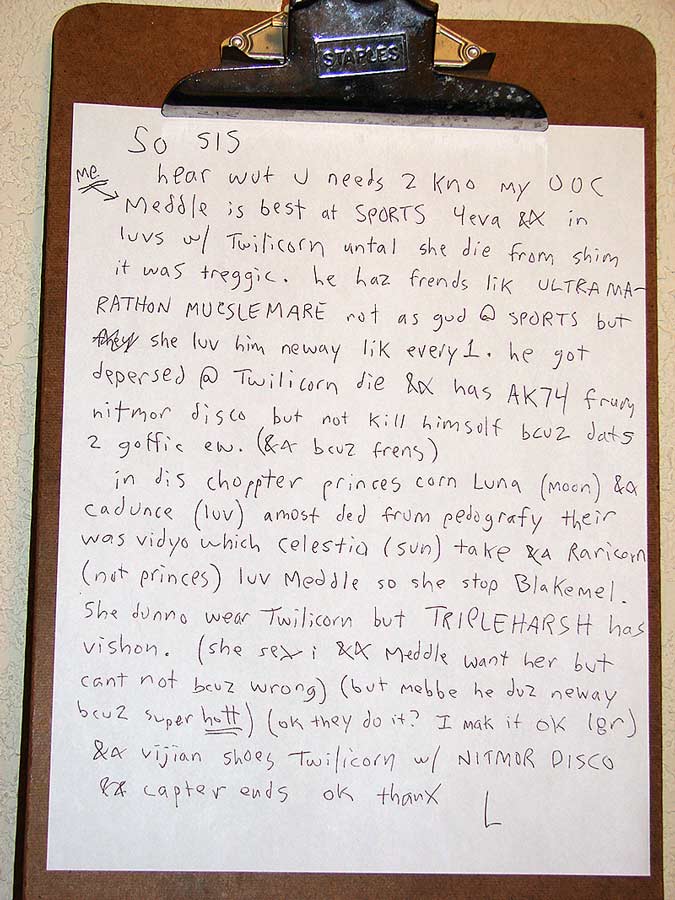 STAPLES
So SIS
me.
hear wut U needs 2 kno my OOC
Meddle is best at SPORTS 4eva && in
luvs w/ Twilicorn untal she die from shim
it was treggic. he haz frends lik ULTRAMA-
RATHON MUCSLEMARE not as gud @ SPORTS but
they she luv him neway lik every1. he got
depersed @ Twilicorn die && has AK74 frum
nitmor disco but not kill himsolf bcuz dats
2 goffic ew. (&& bcuz frens)
in dis choppter princes corn Luna (moon) &&
cadunce (luv) amost ded frum pedografy their
was vidyo which celestia (sun) take && Raricorn
(not princes) luv Meddle so she stop Blakemel.
She dunno wear Twilicorn but TRIPLEHARSH has
vishon. (she sexi && Meddle want her but
cant not bcuz wrong) (but mebbe he duz neway
bcuz super hott) (ok they do it? I mak it ok lgr)
&& vijian shoes Twilicorn w/ NITMOR DISCO
&& capter ends ok thanx L